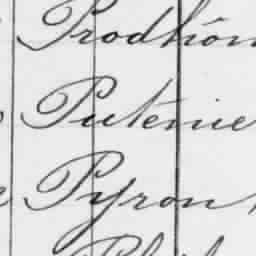 Prodhôm
Puténie
Pyron